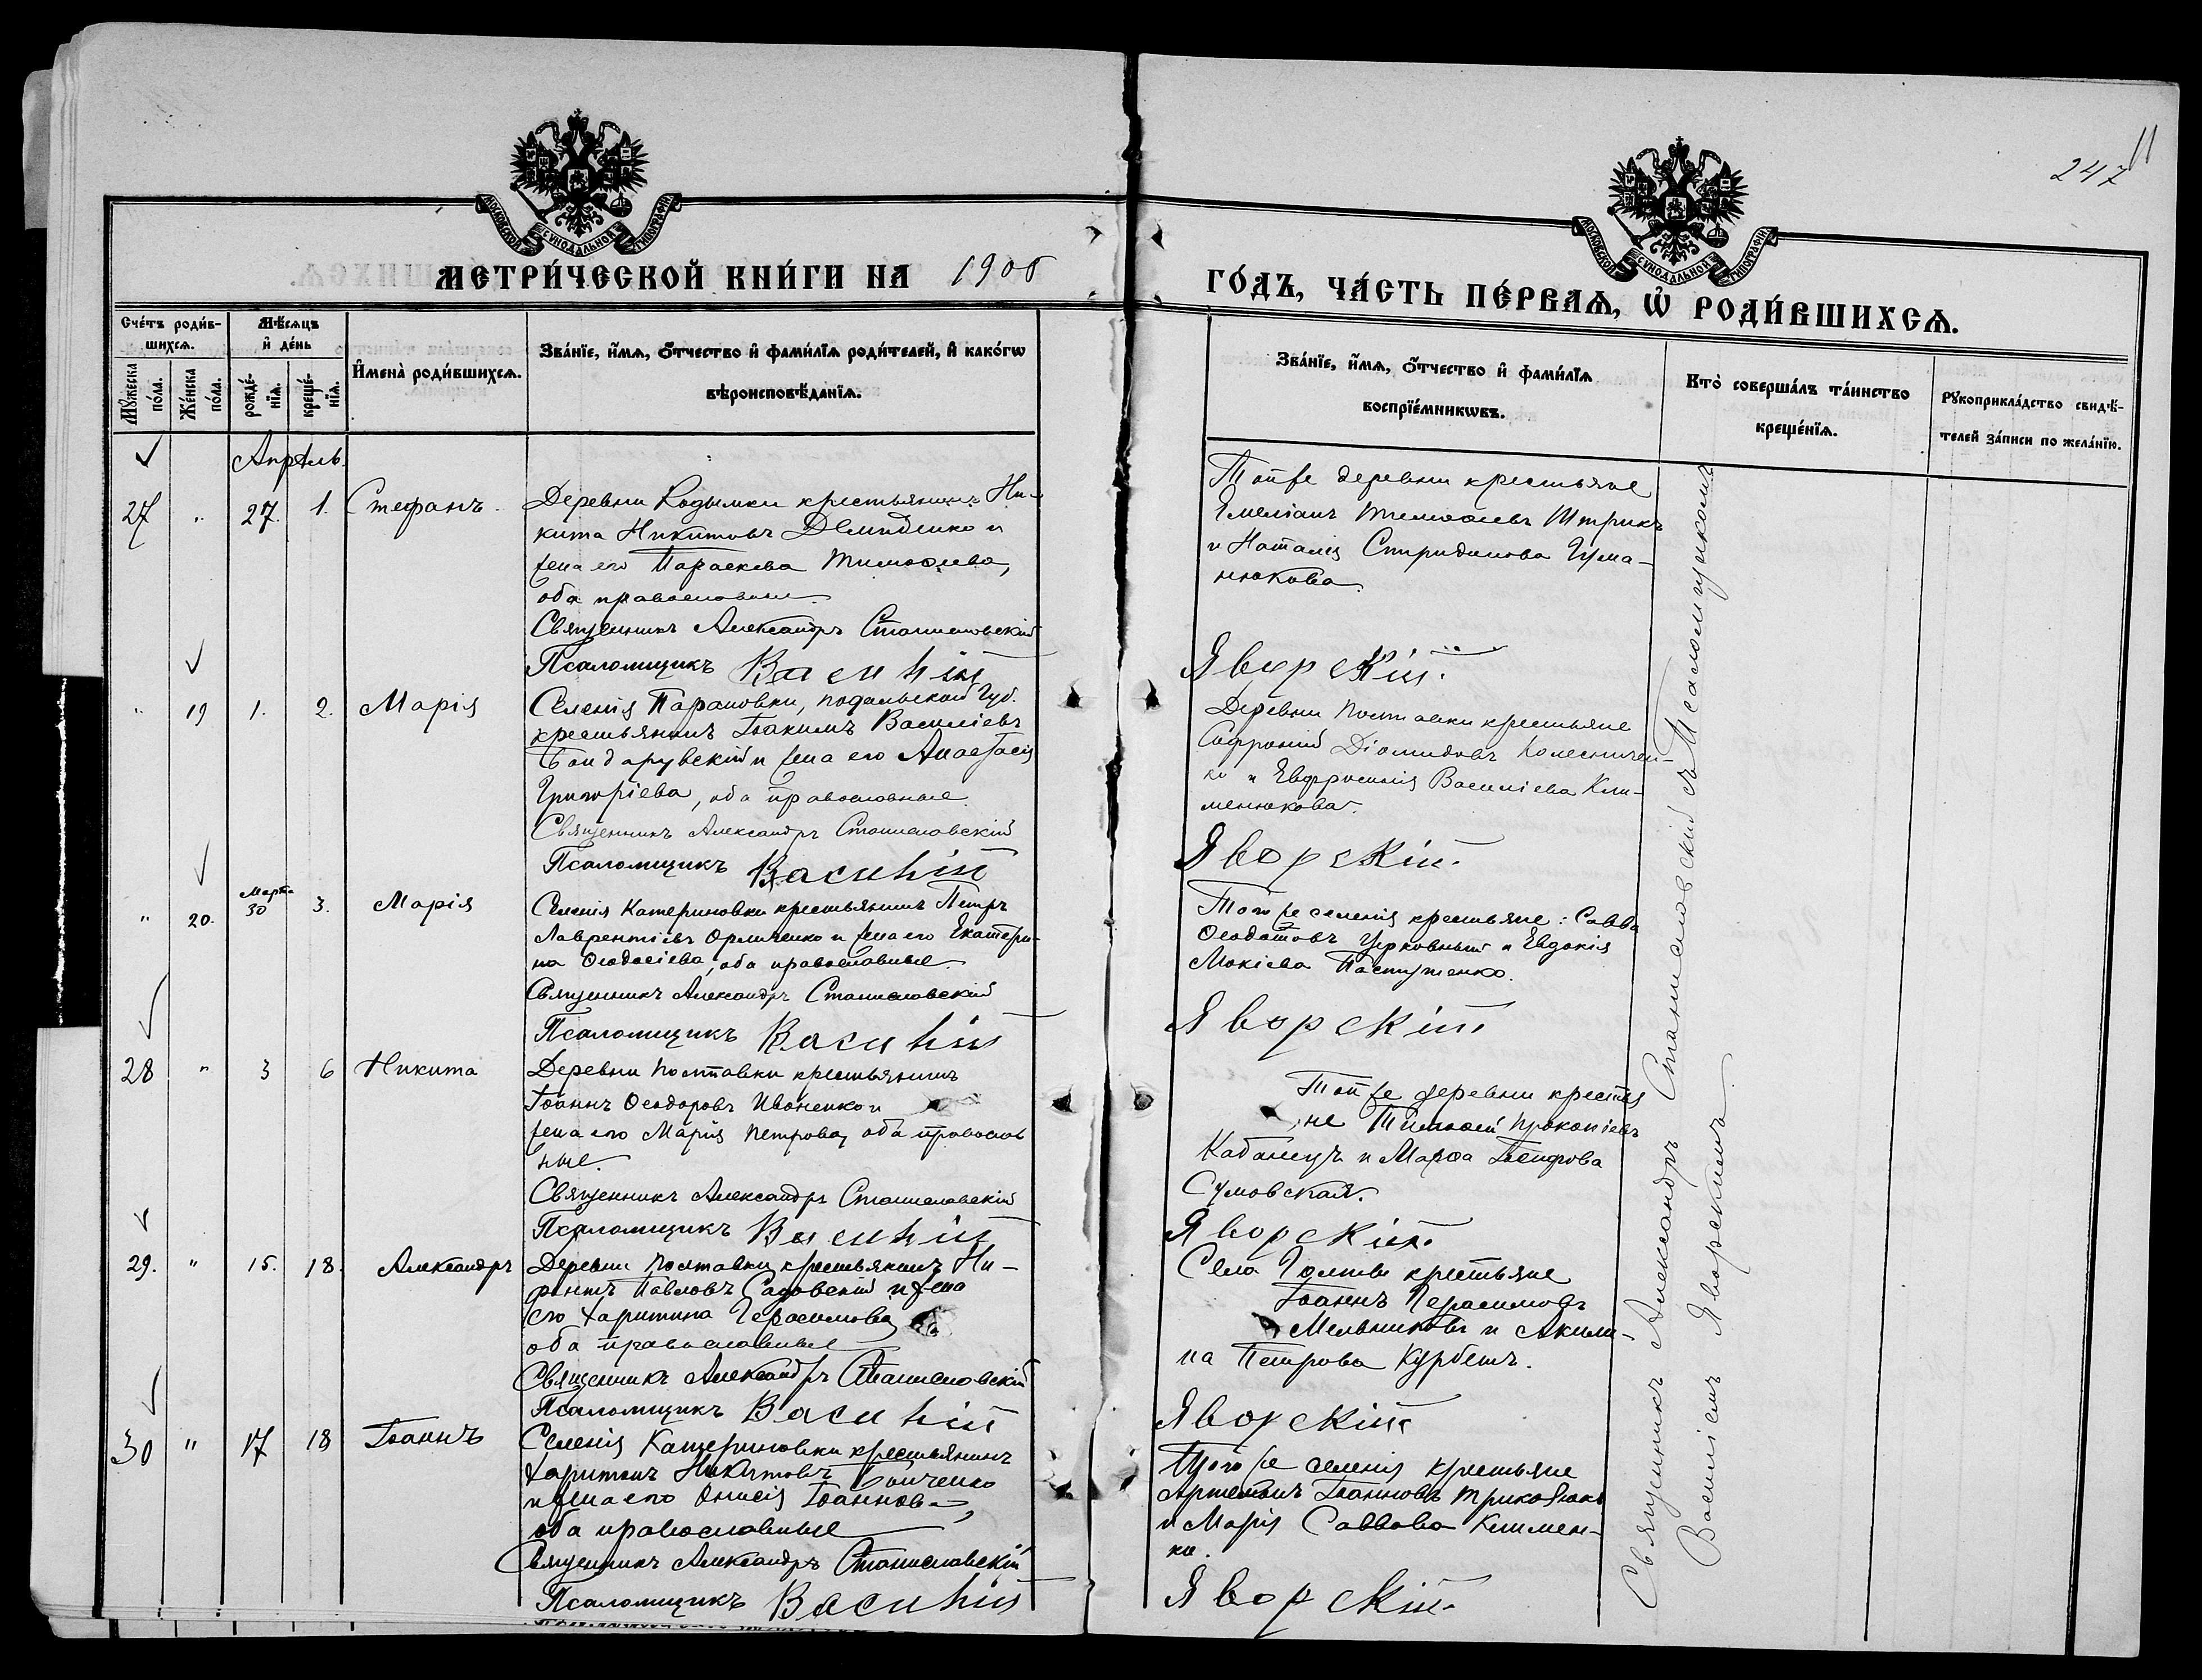 247
11
МОСКОВСКОЙ СѴНОДАЛЬНОЙ ТИПОГРАФІИ
МОСКОВСКОЙ СѴНОДАЛЬНОЙ ТИПОГРАФІИ
МЕТРИ́ЧЕСКОЙ КНИ́ГИ НА 1906
ГО́ДЪ, ЧА́СТЬ ПЕ́РВАѦ, Ѽ РОДИ́ВШИХСѦ.
Сче́тъ роди́в-
шихсѧ.
Мѣ́сѧцъ
и҆ де́нь
Мꙋ́жеска
по́ла.
Же́нска
по́ла.
рожде́-
нїѧ.
креще́-
нїѧ.
И҆мена̀ роди́вшихсѧ.
Зва́нїе, и҆́мѧ, ѻ҆́тчество и҆ фами́лїѧ роди́телей, и҆ како́гѡ
вѣроисповѣ́данїѧ.
Зва́нїе, и҆́мѧ, ѻ҆́тчество и҆ фами́лїѧ
воспрїе́мникѡвъ.
Кто̀ соверша́лъ та́инство
креще́нїѧ.
Рꙋкоприкла́дство свидѣ́-
телей за́писи по жела́нїю.
Апрѣль.
27 " 27. 1. Стефанъ.
Деревни крестьянинъ Ни-
кита Никитовъ Демиденко и
жена его Параскева Тимоѳеева,
оба православные.
Священникъ Александръ Станиславскій
Псаломщикъ Василій
Той же деревни крестьяне
Емеліанъ Тимоѳеевъ Штрикъ
и Наталія Спиридонова Гума-
нюкова.
Яворскій.
" 19 1. 2. Марія
Селенія Парановки, подольской Губ.
крестьянинъ Іоакимъ Василіевъ
Бондарувскій и жена его Анастасія
Григоріева, оба православные.
Священникъ Александръ Станиславскій
Псаломщикъ Василій
Деревни Поставки крестьяне
Софроній Діомидовъ Колесничен-
ко и Евфросинія Василіева Кли-
менюкова.
Яворскій.
" 20. Марта 30 3. Марія
Селенія Катериновки крестьянинъ Петръ
Лаврентіевъ Орличенко и жена его Екатери-
на Ѳеодосіева, оба православные.
Священникъ Александръ Станиславскій
Псаломщикъ Василій
Того же селенія крестьяне: Савва
Ѳеодотовъ Церковный и Евдокія
Мокіева Пастушенко.
Яворскій
28 " 3 6 Никита
Деревни Поставки крестьянинъ
Іоаннъ Ѳеодоровъ Ивоненко и
жена его Марія Петрова, оба православ
ные.
Священникъ Александръ Станиславскій
Псаломщикъ Василій
Той же деревни крестья
не Тимоѳей Прокопіевъ
Кабанецъ и Марѳа
Сумовская.
Яворскій.
29. " 15. 18. Александръ
Деревни Поставки крестьянинъ Ни-
фонтъ Павловъ Садовскій и жена
его Харитина Герасимова,
оба православные
Священникъ Александръ Станиславскій
Псаломщикъ Василій
Села Голтвы крестьяне
Іоаннъ Герасимовъ
Мельниковъ и Акили-
на Петрова Курбетъ.
Яворскій
30 " 17 18 Іоаннъ
Селенія Катериновки крестьянинъ
Харитонъ Никитовъ Бойченко
и жена его Онисія Іоаннова,
оба православные
Священникъ Александръ Станиславскій
Псаломщикъ Василій
Того же селенія крестьяне
Артемонъ Іоанновъ
и Марія Саввова Клименко
ко.
Яворскій.
Священникъ Александръ Станиславскій съ Псаломщикомъ
Василіемъ Яворскимъ.